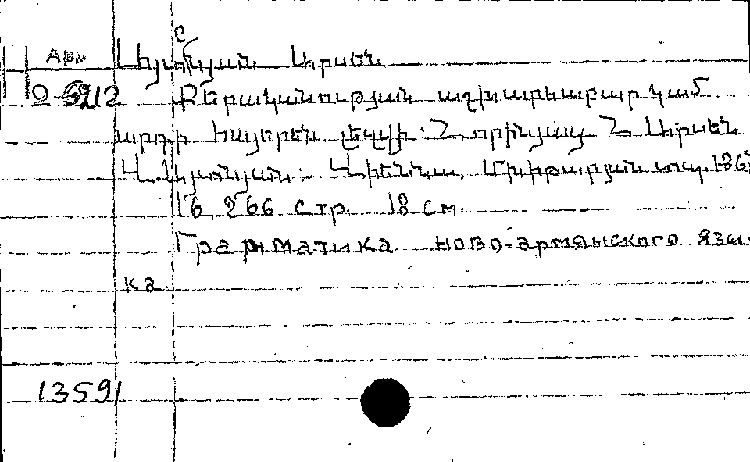 Арм Այտնյան Արսեն
2-5212 Քերականություն աշխարհաբար կամ
արդի հայերեն լեզվի: Հ. Արսեն
Վ. Այտնյան: Վիեննա, Մխիթարյան տպ. 186
16 266 стр 18 см
Грамматика ново-армянского язы-
ка
13591